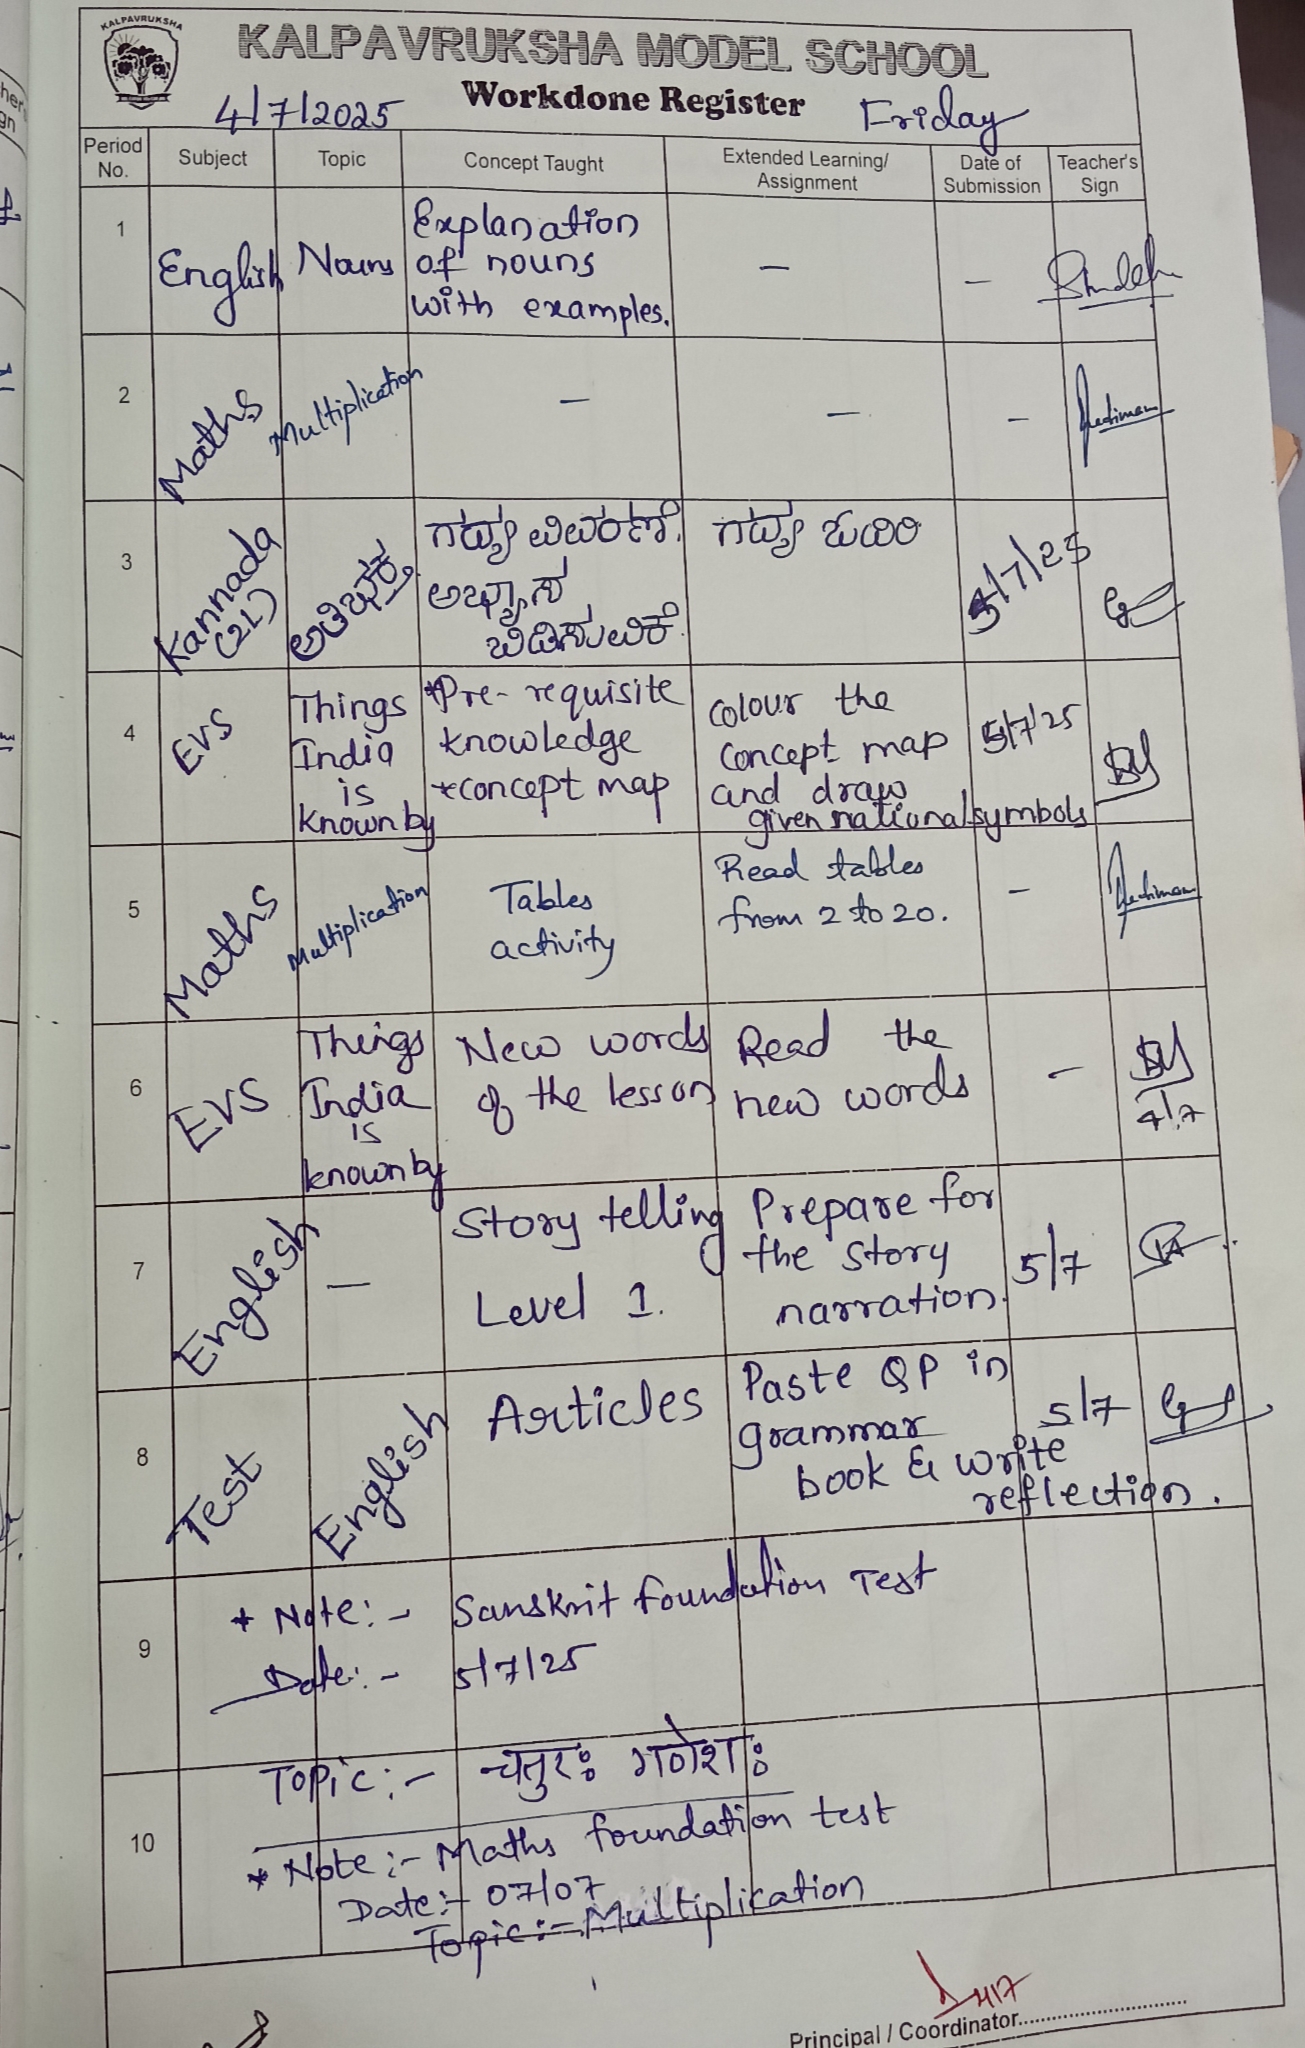 KALPAVRUKSHA
KALPAVRUKSHA MODEL SCHOOL
Workdone Register
4/7/2025 Friday
Period No. Subject Topic Concept Taught Extended Learning/ Assignment Date of Submission Teacher's Sign
1 English Nouns Explanation of nouns with examples. - -
2 Maths Multiplication - - -
3 Kannada (2L) ಗದ್ಯ ವಿವರಣೆ. ಅಭ್ಯಾಸ ಬಿಡಿಸುವಿಕೆ. ಗದ್ಯ ಓದಿರಿ 5/7/25
4 EVS Things India is known by *Pre-requisite knowledge *concept map colour the concept map and draw given national symbols 5/7/25
5 Maths Multiplication Tables activity Read tables from 2 to 20. -
6 EVS Things India is known by New words of the lesson Read the new words - 4/7
7 English - Story telling Level 1. Prepare for the story narration. 5/7
8 Test English Articles Paste QP in grammar book & write reflection. 5/7
9 * Note:- Sanskrit foundation Test
Date:- 5/7/25
Topic:- चतुरः गणेशः
10 * Note:- Maths foundation test
Date:- 07/07
Topic:- Multiplication
4/7
Principal / Coordinator